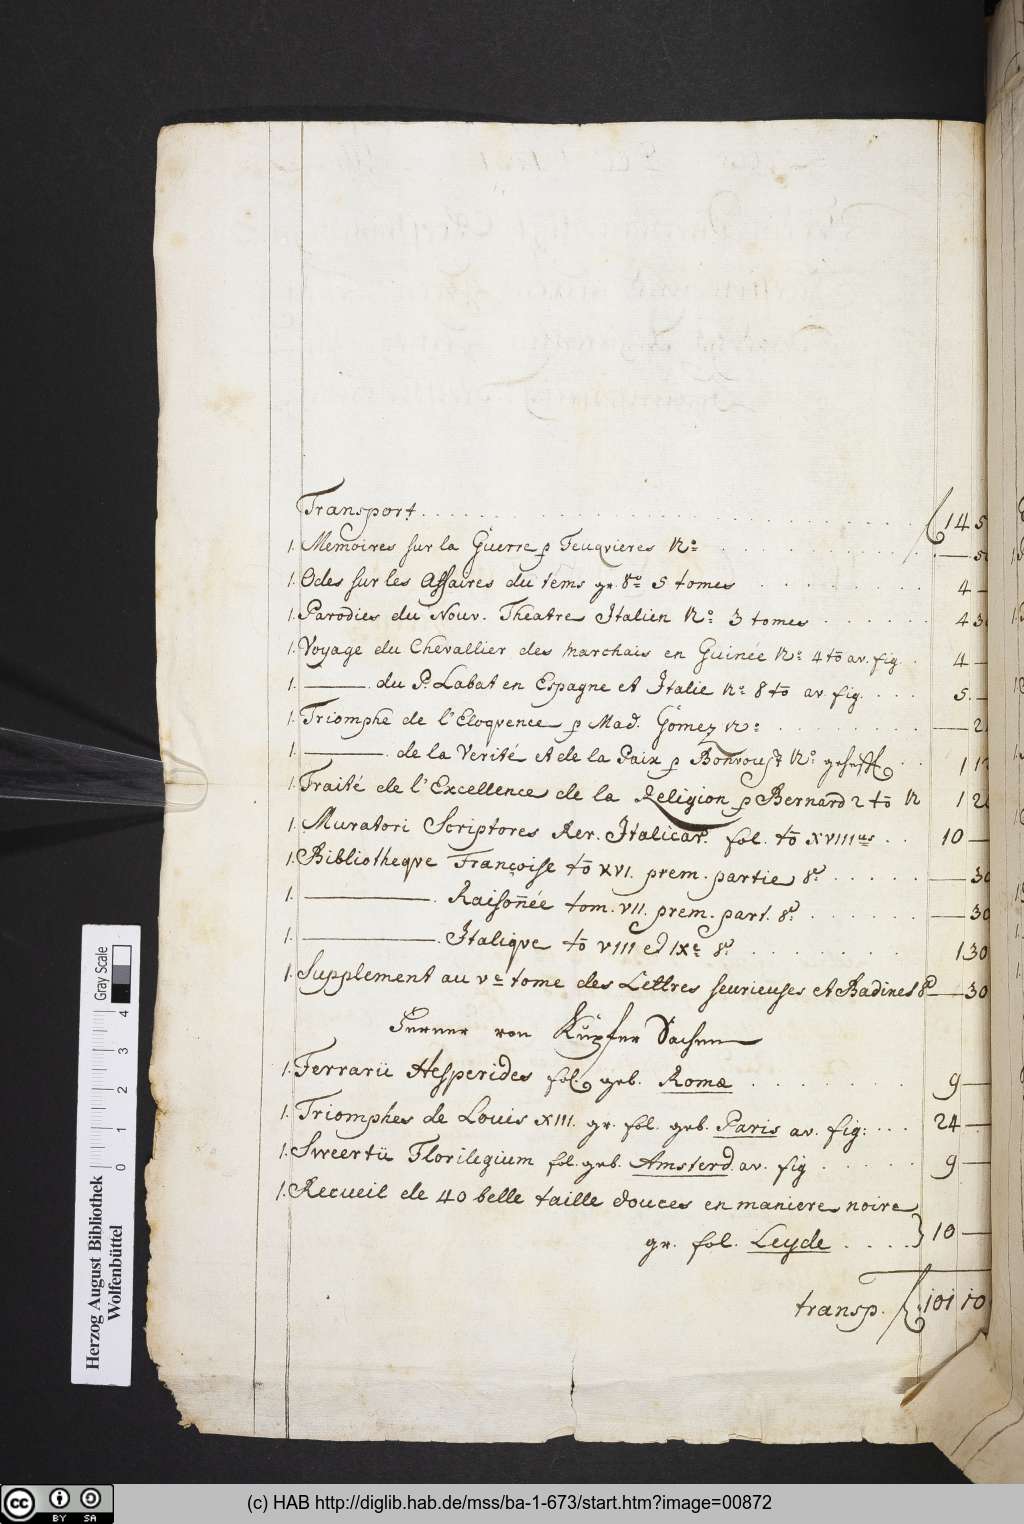 Transport . . . . . 14 5
1. Memoires sur la Guerre p Feuqvieres 12º — 5
1. Odes sur les Affaires du tems gr. 8º 5 tomes . . . 4 —
1. Parodies du Nouv. Theatre Italien 12º 3 tomes . . . 4 3
1. Voyage du Chevallier des Marchais en Guinée 12º 4 to av. fig . 4 —
1. ——— . du P. Labat en Espagne et Italie 12º 8 to av fig. . . . 5. —
1. Triomphe de l'Eloqvence p Mad. Gomez 12º . . . — 2
1. ——— . de la Verité et de la Paix p 12º . . 1 1
1. Traité de l'Excellence de la Religion p Bernard 2 to 12 1 2
1. Muratori Scriptores Rer. Italicar. fol. to XVIII . . 10 —
1. Bibliotheqve Françoise to XVI. prem. partie 8º . . . — 30
1. ——— . Raisoñée tom. VII. prem. part. 8º . . . — 30
1. ——— . Italiqve to VIII et IXe 8º . . . 1.30
1. Supplement au Ve tome des Lettres serieuses et Badines 8º — 30
Ferner von Kupfer Sachen
1. Ferrarii Hesperides fol. geb. Romæ . . . 9 —
1. Triomphes de Louis XIII. gr. fol. geb. Paris av. fig: . . . 24 —
1. Sweertii Florilegium fol. geb. Amsterd. av. fig . . . 9 —
1. Recueil de 40 belle taille douces en maniere noire
gr. fol. Leyde . . . . } 10 —
transp. 101 10
Herzog August Bibliothek
Wolfenbüttel
Gray Scale
0 1 2 3 4
cc BY SA
(c) HAB http://diglib.hab.de/mss/ba-1-673/start.htm?image=00872